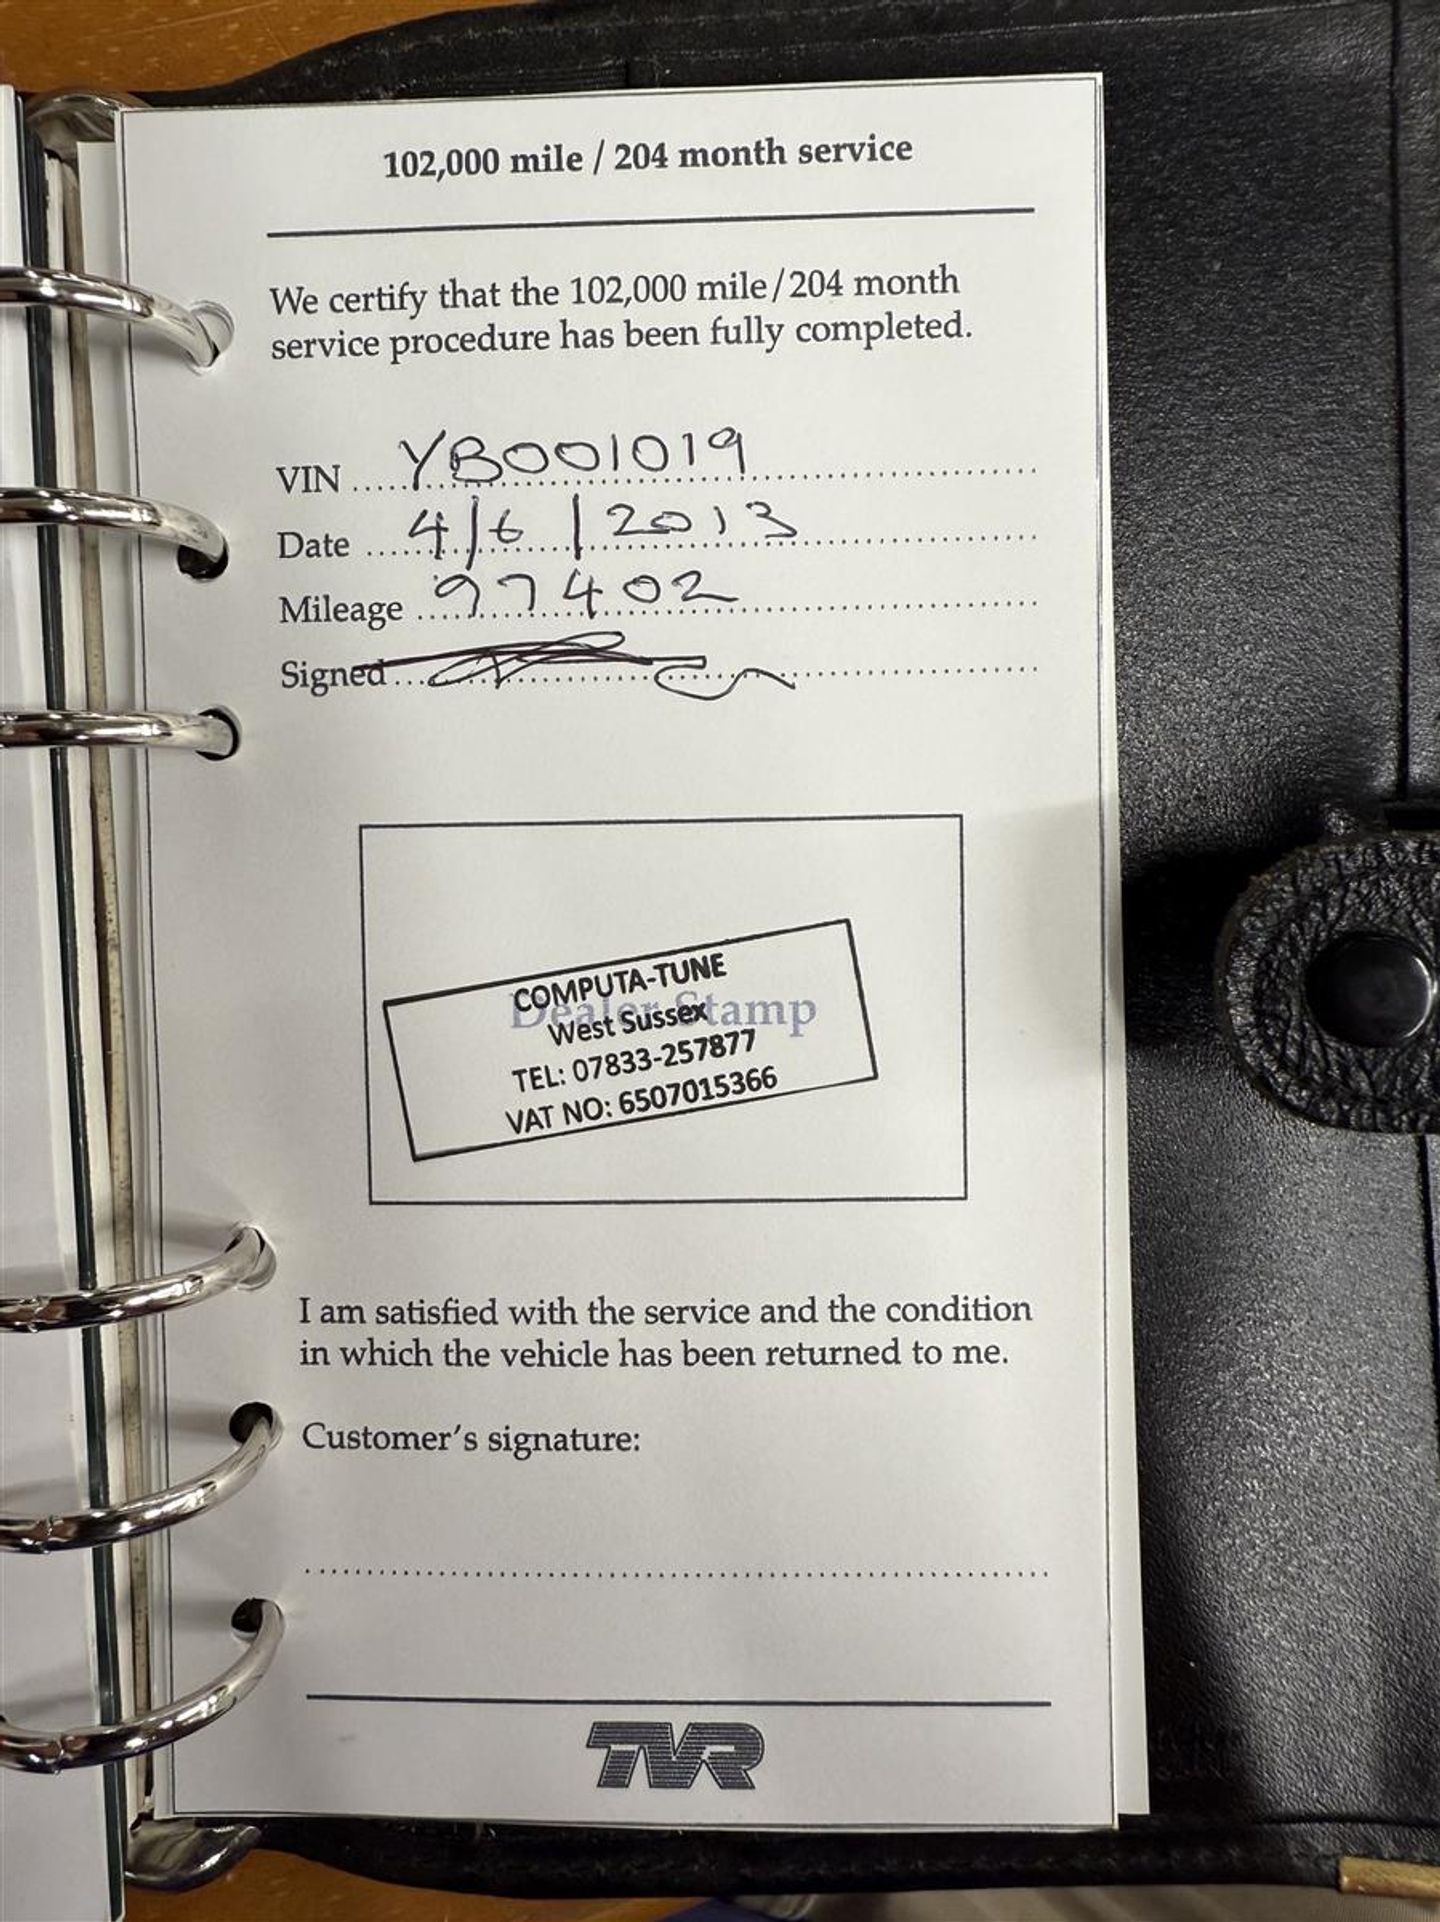 102,000 mile / 204 month service
We certify that the 102,000 mile/204 month
service procedure has been fully completed.
VIN ..... YB001019
Date ..... 4/6/2013
Mileage ..... 97402
Signed .....
Dealer Stamp
COMPUTA-TUNE
West Sussex
TEL: 07833-257877
VAT NO: 6507015366
I am satisfied with the service and the condition
in which the vehicle has been returned to me.
Customer's signature:
TVR